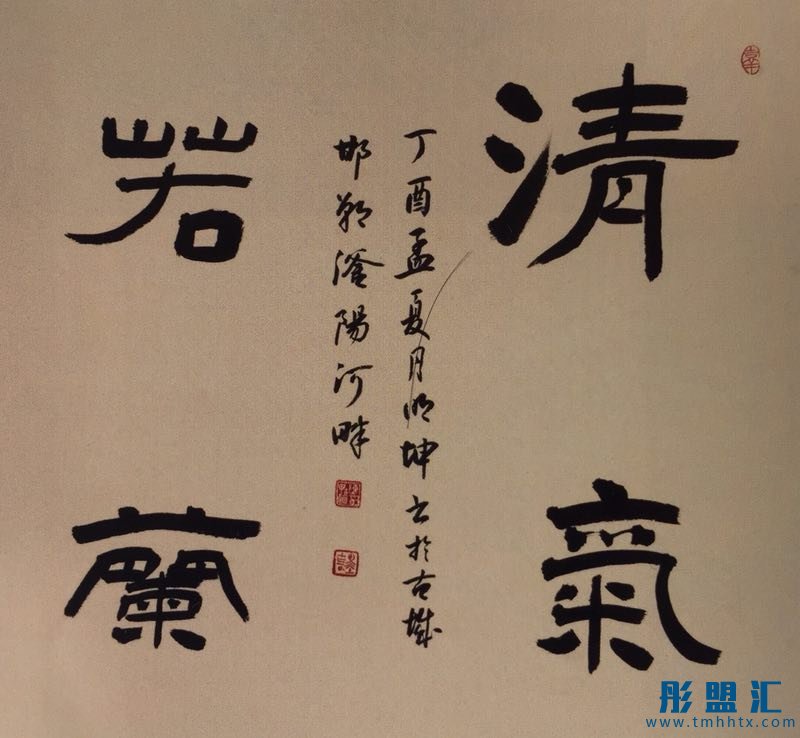 清氣
若蘭
丁酉孟夏月明坤书於古城
邯鄲滏陽河畔
彤盟汇
www.tmhhtx.com